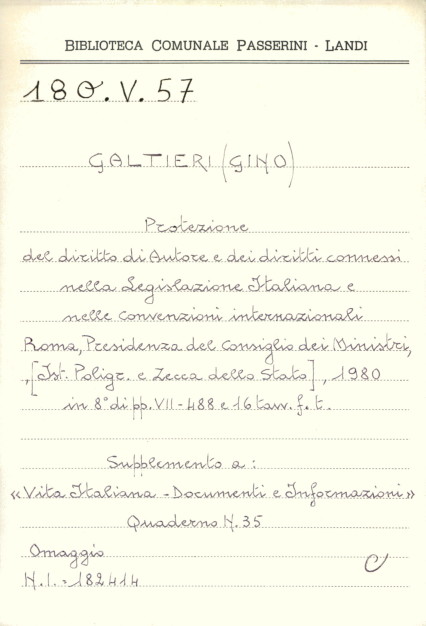 BIBLIOTECA COMUNALE PASSERINI - LANDI
180.V.57
GALTIERI (GINO)
Protezione
del diritto di Autore e dei diritti connessi
nella Legislazione Italiana e
nelle convenzioni internazionali
Roma, Presidenza del Consiglio dei Ministri,
, [Ist. Poligr. e Zecca dello Stato], 1980
in 8° di pp. VII - 488 e 16 tavv. f. t.
Supplemento a :
« Vita Italiana - Documenti e Informazioni »
Quaderno N. 35
Omaggio
N.I. = 182414